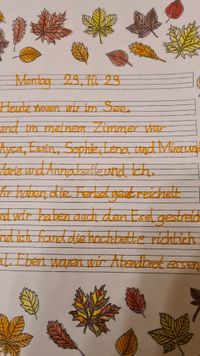 Montag 23.10.23
Heute waren wir im See.
und in meinem Zimmer war
Ayca, Esxin, Sophie, Lena und
Marie und Annabelle und Ich.
Wir haben die Ferkel gestreichelt
und wir haben auch den Esel
und Ich fand die hochbette richtich
Eben waren wir Abendbrot essen